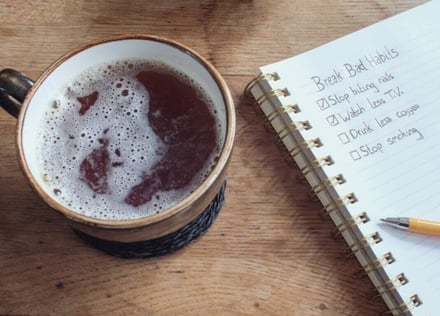 Break Bad Habits
Stop biting nails
Watch less T.V.
Drink less coffee
Stop smoking